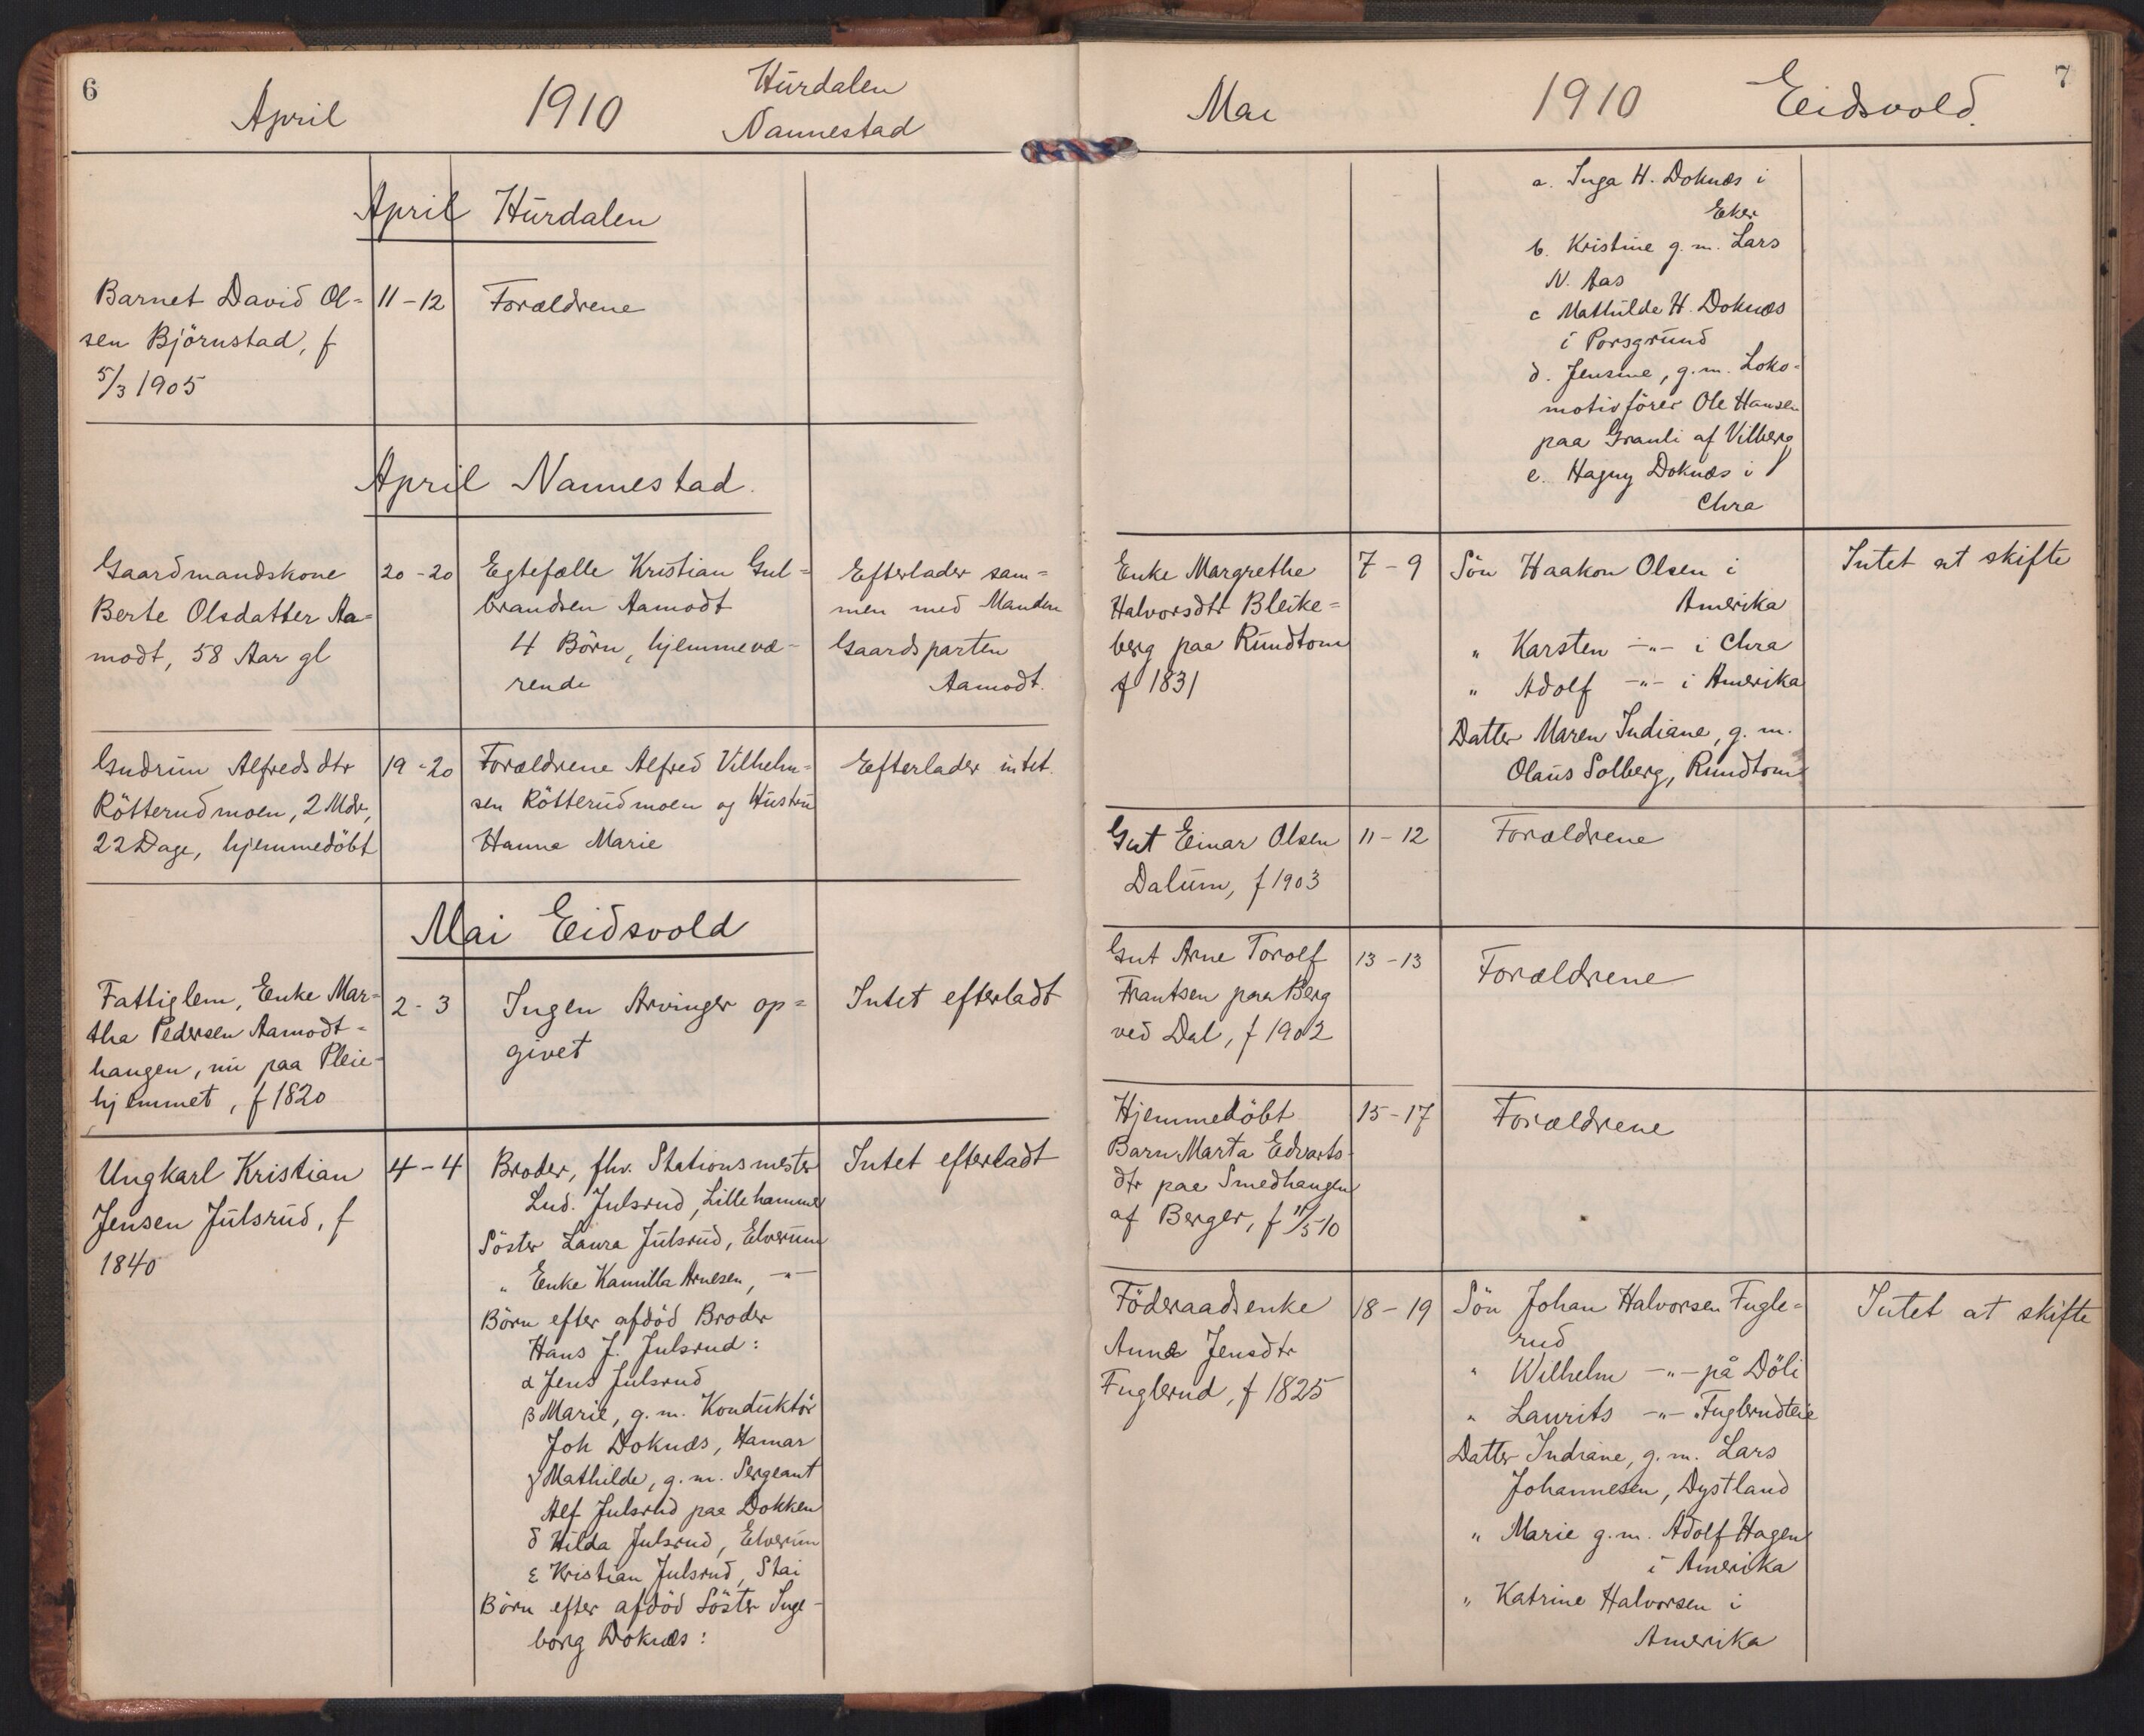 6
April
1910
Hurdalen
Nannestad
April Hurdalen
Barnet David Ol=
sen Björnstad, f
5/3 1905
11-12
Forældrene
April Nannestad.
Gaardmandskone
Berte Olsdatter Aa=
modt, 58 Aar gl
20-20
Egtefælle Kristian Gul=
brandsen Aamodt
4 Börn, hjemmevæ-
rende
Efterlader sam=
men med Manden
Gaardsparten
Aamodt.
Gudrun Alfredsdtr
Rötterudmoen, 2 Mdr,
22 Dage, hjemmedöbt
19-20
Forældrene Alfred Vilhelm=
sen Rötterudmoen og Hustru
Hanna Marie
Efterlader intet.
Mai Eidsvold
Fattiglem, Enke Mar=
tha Pedersen Aamodt-
haugen, nu paa Pleie-
hjemmet, f 1820
2-3
Ingen Arvinger op=
givet
Intet efterladt
Ungkarl Kristian
Jensen Julsrud, f
1840
4-4
Broder, fhv. Stationsmester
Lud. Julsrud, Lillehammer
Söster Laura Julsrud, Elverum
" Enke Kamilla Arnesen, -"-
Börn efter afdöd Broder
Hans J. Julsrud:
α Jens Julsrud
β Marie, g.m. Konduktör
Joh Doknæs, Hamar
γ Mathilde, g.m. Sergeant
Alf Julsrud paa Dokken
δ Hilda Julsrud, Elverum
ε Kristian Julsrud, Stai
Börn efter afdöd Söster Inge-
borg Doknæs:
Intet efterladt
7
Mai
1910
Eidsvold.
a. Inga H. Doknæs i
Eker
b. Kristine g.m. Lars
N. Aas
c Mathilde H. Doknæs
i Porsgrund
d. Jensine, g.m. Loko=
motivförer Ole Hansen
paa Granli af Vilberg
e. Hagny Doknæs i
Chra
Enke Margrethe
Halvorsdtr Bleike=
berg paa Rundtom
f 1831
7-9
Sön Haakon Olsen i
Amerika
" Karsten -"- i Chra
" Adolf -"- i Amerika
Datter Maren Indiane, g.m.
Olaus Solberg, Rundtom
Intet at skifte
Gut Einar Olsen
Dalum, f 1903
11-12
Forældrene
Gut Arne Torolf
Frantsen paa Berg
ved Dal, f 1902
13-13
Forældrene
Hjemmedöbt
Barn Marta Edvarts-
dtr paa Smedhaugen
af Berger, f 11/5 10
15-17
Forældrene
Föderaadsenke
Anne Jensdtr
Fuglerud, f 1825
18-19
Sön Johan Halvorsen Fugle=
rud
" Wilhelm -"- på Döli
" Laurits -"- " Fuglerudteie
Datter Indiane, g.m. Lars
Johannesen, Dystland
" Marie g.m. Adolf Hagen
i Amerika
" Katrine Halvorsen i
Amerika
Intet at skifte